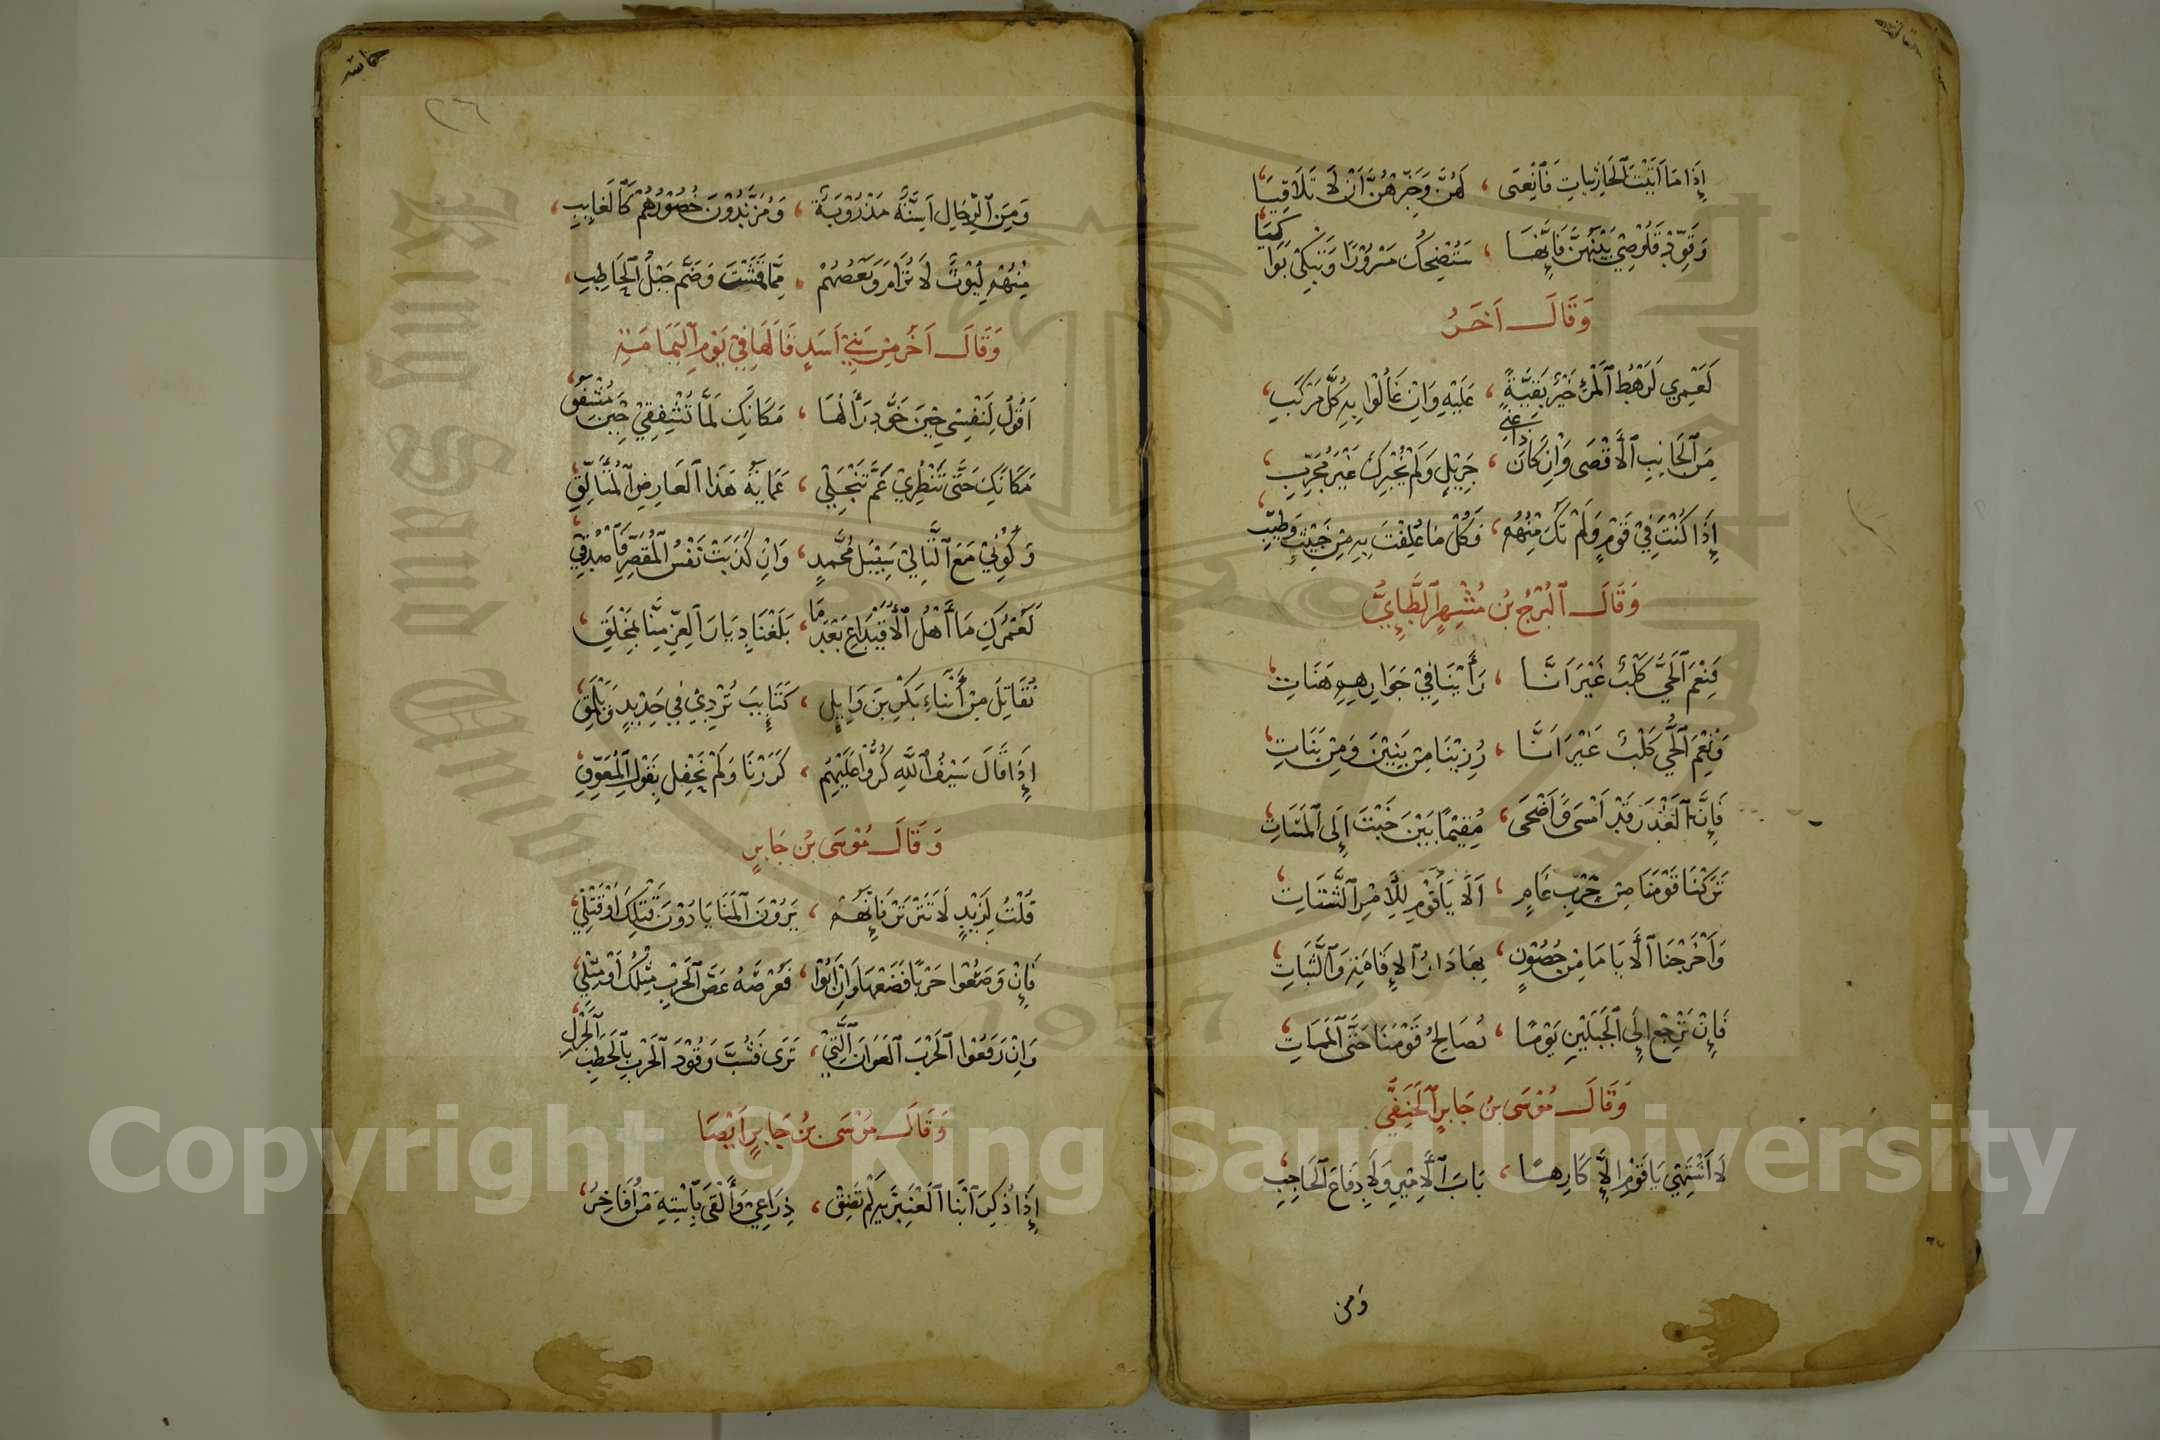 إِذَا مَا أَتَيْتَ الْحَارِثِيَّاتِ فَانْعَنِي ، لَهُنَّ وَخَبِّرْهُنَّ أَنْ لَا تَلَاقِيَا
وَقَوِّدْ قَلُوصِي بَيْنَهُنَّ فَإِنَّهَا ، سَتُضْحِكُ مَسْرُورًا وَتُبْكِي بَوَاكِيَا
وَقَالَ آخَرُ
لَعَمْرِي لَرَهْطُ الْمَرْءِ خَيْرٌ بَقِيَّةً ، عَلَيْهِ وَإِنْ عَالُوا بِهِ كُلَّ مَرْكَبِ
مِنَ الْجَانِبِ الْأَقْصَى وَإِنْ كَانَ ذَا غِنًى ، جَزِيلٍ وَلَمْ يُخْبِرْكَ غَيْرُ مُجَرِّبِ
إِذَا كُنْتَ فِي قَوْمٍ وَلَمْ تَكُ مِنْهُمُ ، فَكُلْ مَا عُلِفْتَ بِهِ مِنْ خَبِيثٍ وَطَيِّبِ
وَقَالَ الْبُرْجُ بْنُ مُسْهِرٍ الطَّائِيُّ
فَنِعْمَ الْحَيُّ كَلْبٌ غَيْرَ أَنَّا ، رَأَيْنَا فِي جَوَارِهِمِ هَنَاتِ
وَنِعْمَ الْحَيُّ كَلْبٌ غَيْرَ أَنَّا ، رُزِئْنَا مِنْ بَنِينَ وَمِنْ بَنَاتِ
فَإِنَّ الْغَدْرَ قَدْ أَمْسَى وَأَضْحَى ، مُقِيمًا بَيْنَ خَبْتَ إِلَى الْمَسَاتِ
تَرَكْنَا قَوْمَنَا مِنْ حَرْبِ عَامٍ ، أَلَا يَا قَوْمِ لِلْأَمْرِ الشَّتَاتِ
وَأَخْرَجْنَا الْأَيَامَى مِنْ حُصُونٍ ، بِهَا دَارُ الْإِقَامَةِ وَالثَّبَاتِ
فَإِنْ نَرْجِعْ إِلَى الْجَبَلَيْنِ يَوْمًا ، نُصَالِحْ قَوْمَنَا حَتَّى الْمَمَاتِ
وَقَالَ مُوسَى بْنُ جَابِرٍ الْحَنَفِيُّ
لَا أَشْتَهِي يَا قَوْمِ إِلَّا كَارِهًا ، بَابَ الْأَمِيرِ وَلَا دِفَاعَ الْحَاجِبِ
ومن
حماسه
٢٦
وَمِنَ الرِّجَالِ أَسِنَّةٌ مَذْرُوبَةٌ ، وَمُزَنَّدُونَ حُضُورُهُمْ كَالْغَائِبِ
مِنْهُمْ لُيُوثٌ لَا تُرَامُ وَبَعْضُهُمْ ، مِمَّا قَمَشْتَ وَضَمَّ حَبْلُ الْحَاطِبِ
وَقَالَ آخَرُ مِنْ بَنِي أَسَدٍ قَالَهَا فِي يَوْمِ الْيَمَامَةِ
أَقُولُ لِنَفْسِي حِينَ خَوَّدَ رَأْلُهَا ، مَكَانَكِ لَمَّا تُشْفِقِي حِينَ مُشْفَقِ
مَكَانَكِ حَتَّى تَنْظُرِي عَمَّ تَنْجَلِي ، عَمَايَةُ هَذَا الْعَارِضِ الْمُتَأَلِّقِ
وَكُونِي مَعَ التَّالِي سَبِيلَ مُحَمَّدٍ ، وَإِنْ كَذَبَتْ نَفْسُ الْمُقَصِّرِ فَاصْدُقِي
لَعَمْرُكَ مَا أَهْلُ الْأُقَيْدَاعِ بَعْدَ مَا ، بَلَغْنَا دِيَارَ الْعِرْضِ مِنَّا بِمُخْلَقِ
نُقَاتِلُ مِنْ أَبْنَاءِ بَكْرِ بْنِ وَايِلٍ ، كَتَائِبَ تَرْدِي فِي حَدِيدٍ وَيَلْمَقِ
إِذَا قَالَ سَيْفُ اللَّهِ كُرُّوا عَلَيْهِمُ ، كَرَرْنَا وَلَمْ نَحْفِلْ بِقَوْلِ الْمُعَوِّقِ
وَقَالَ مُوسَى بْنُ جَابِرٍ
قُلْتُ لِزَيْدٍ لَا تُتَرْتِرْ فَإِنَّهُمْ ، يَرَوْنَ الْمَنَايَا دُونَ قَتْلِكَ أَوْ قَتْلِي
فَإِنْ وَضَعُوا حَرْبًا فَضَعْهَا وَإِنْ أَبَوْا ، فَعُرْضَةُ عَضِّ الْحَرْبِ مِثْلُكَ أَوْ مِثْلِي
وَإِنْ رَفَعُوا الْحَرْبَ الْعَوَانَ الَّتِي ، تَرَى فَشُبَّ وَقُودَ الْحَرْبِ بِالْحَطَبِ الْجَزْلِ
وَقَالَ مُوسَى بْنُ جَابِرٍ أَيْضًا
إِذَا ذُكِرَ ابْنَا الْعَنْبَرِيَّةِ لَمْ تَضِقْ ، ذِرَاعِي وَأَلْقَى بِاسْتِهِ مَنْ أُفَاخِرُ
Copyright © King Saud University
King Saud University
1957